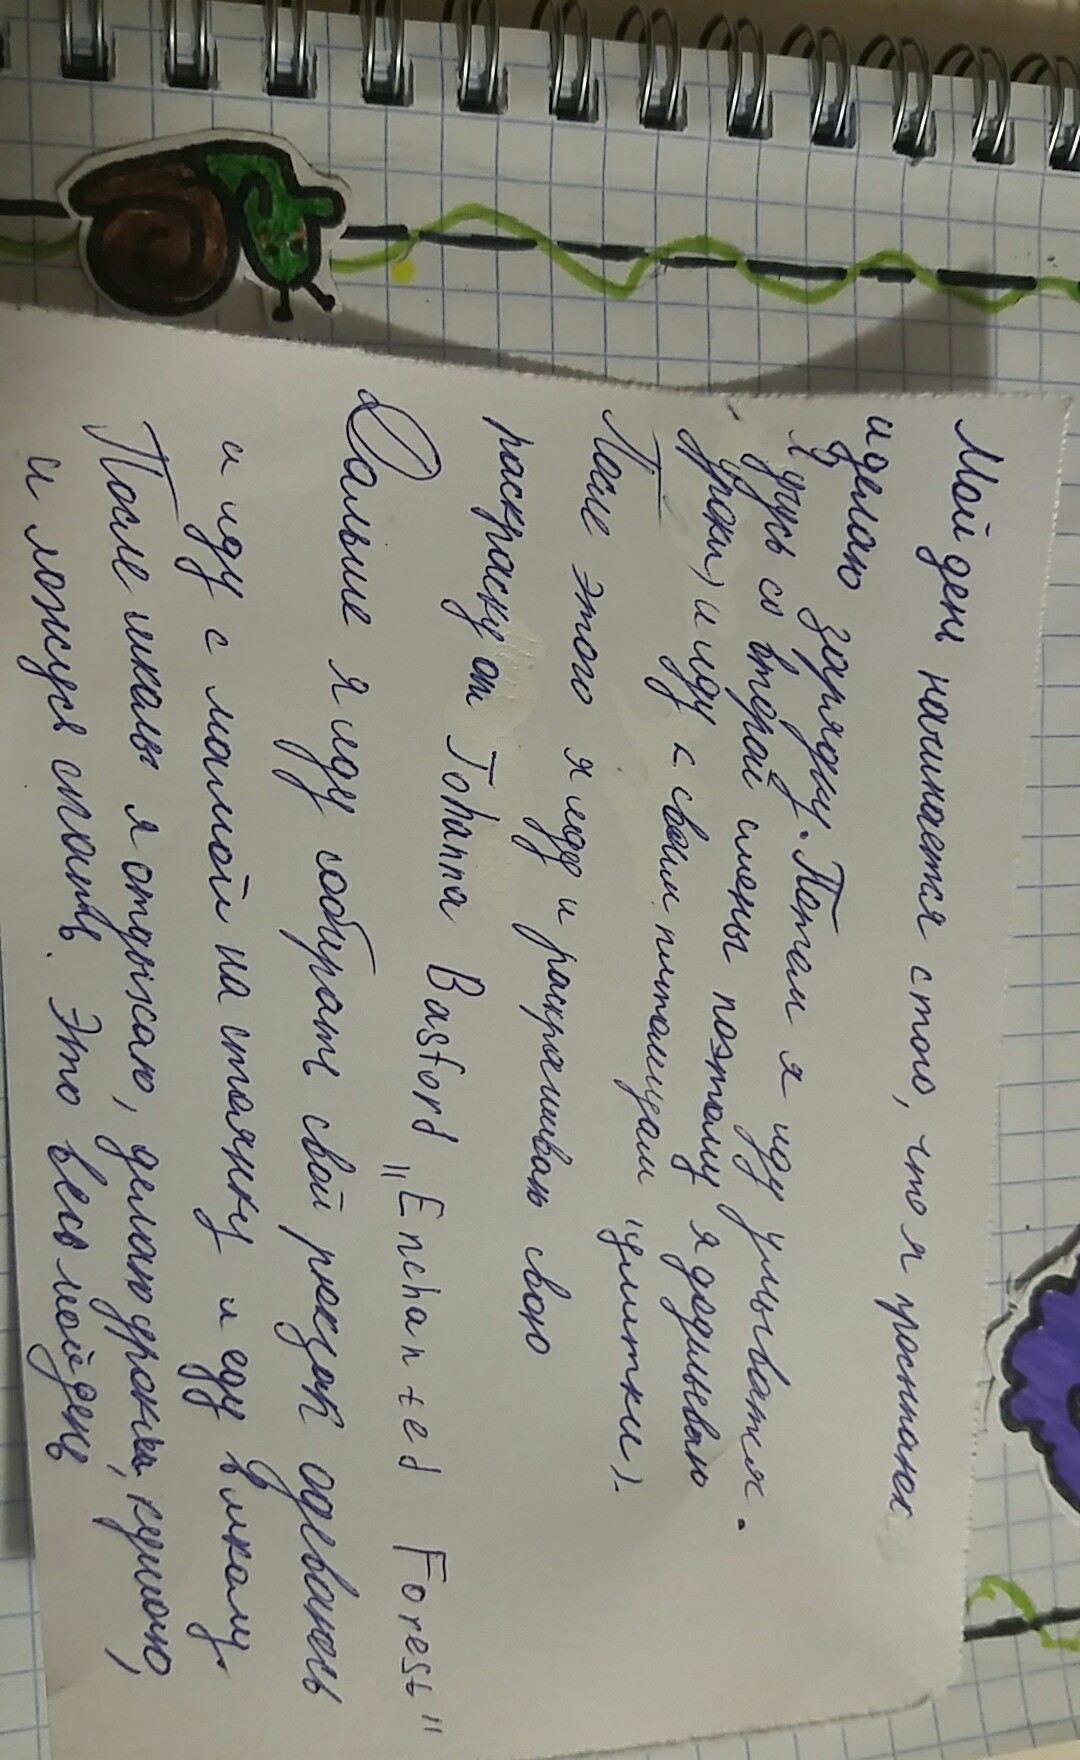 Мой день начинается с того, что я просыпаюсь
и делаю зарядку. Потом я иду умываться.
Я учусь со второй смены поэтому я доделываю
уроки) и иду к своим питомцам (улитки).
После этого я иду и раскрашиваю свою
раскраску от Johanna Basford „Enchanted Forest"
Дальше я иду собирать свой рюкзак одеваюсь
и иду с мамой на стоянку и еду в школу.
После школы я отдыхаю, делаю уроки, кушаю,
и ложусь спать. Это весь мой день